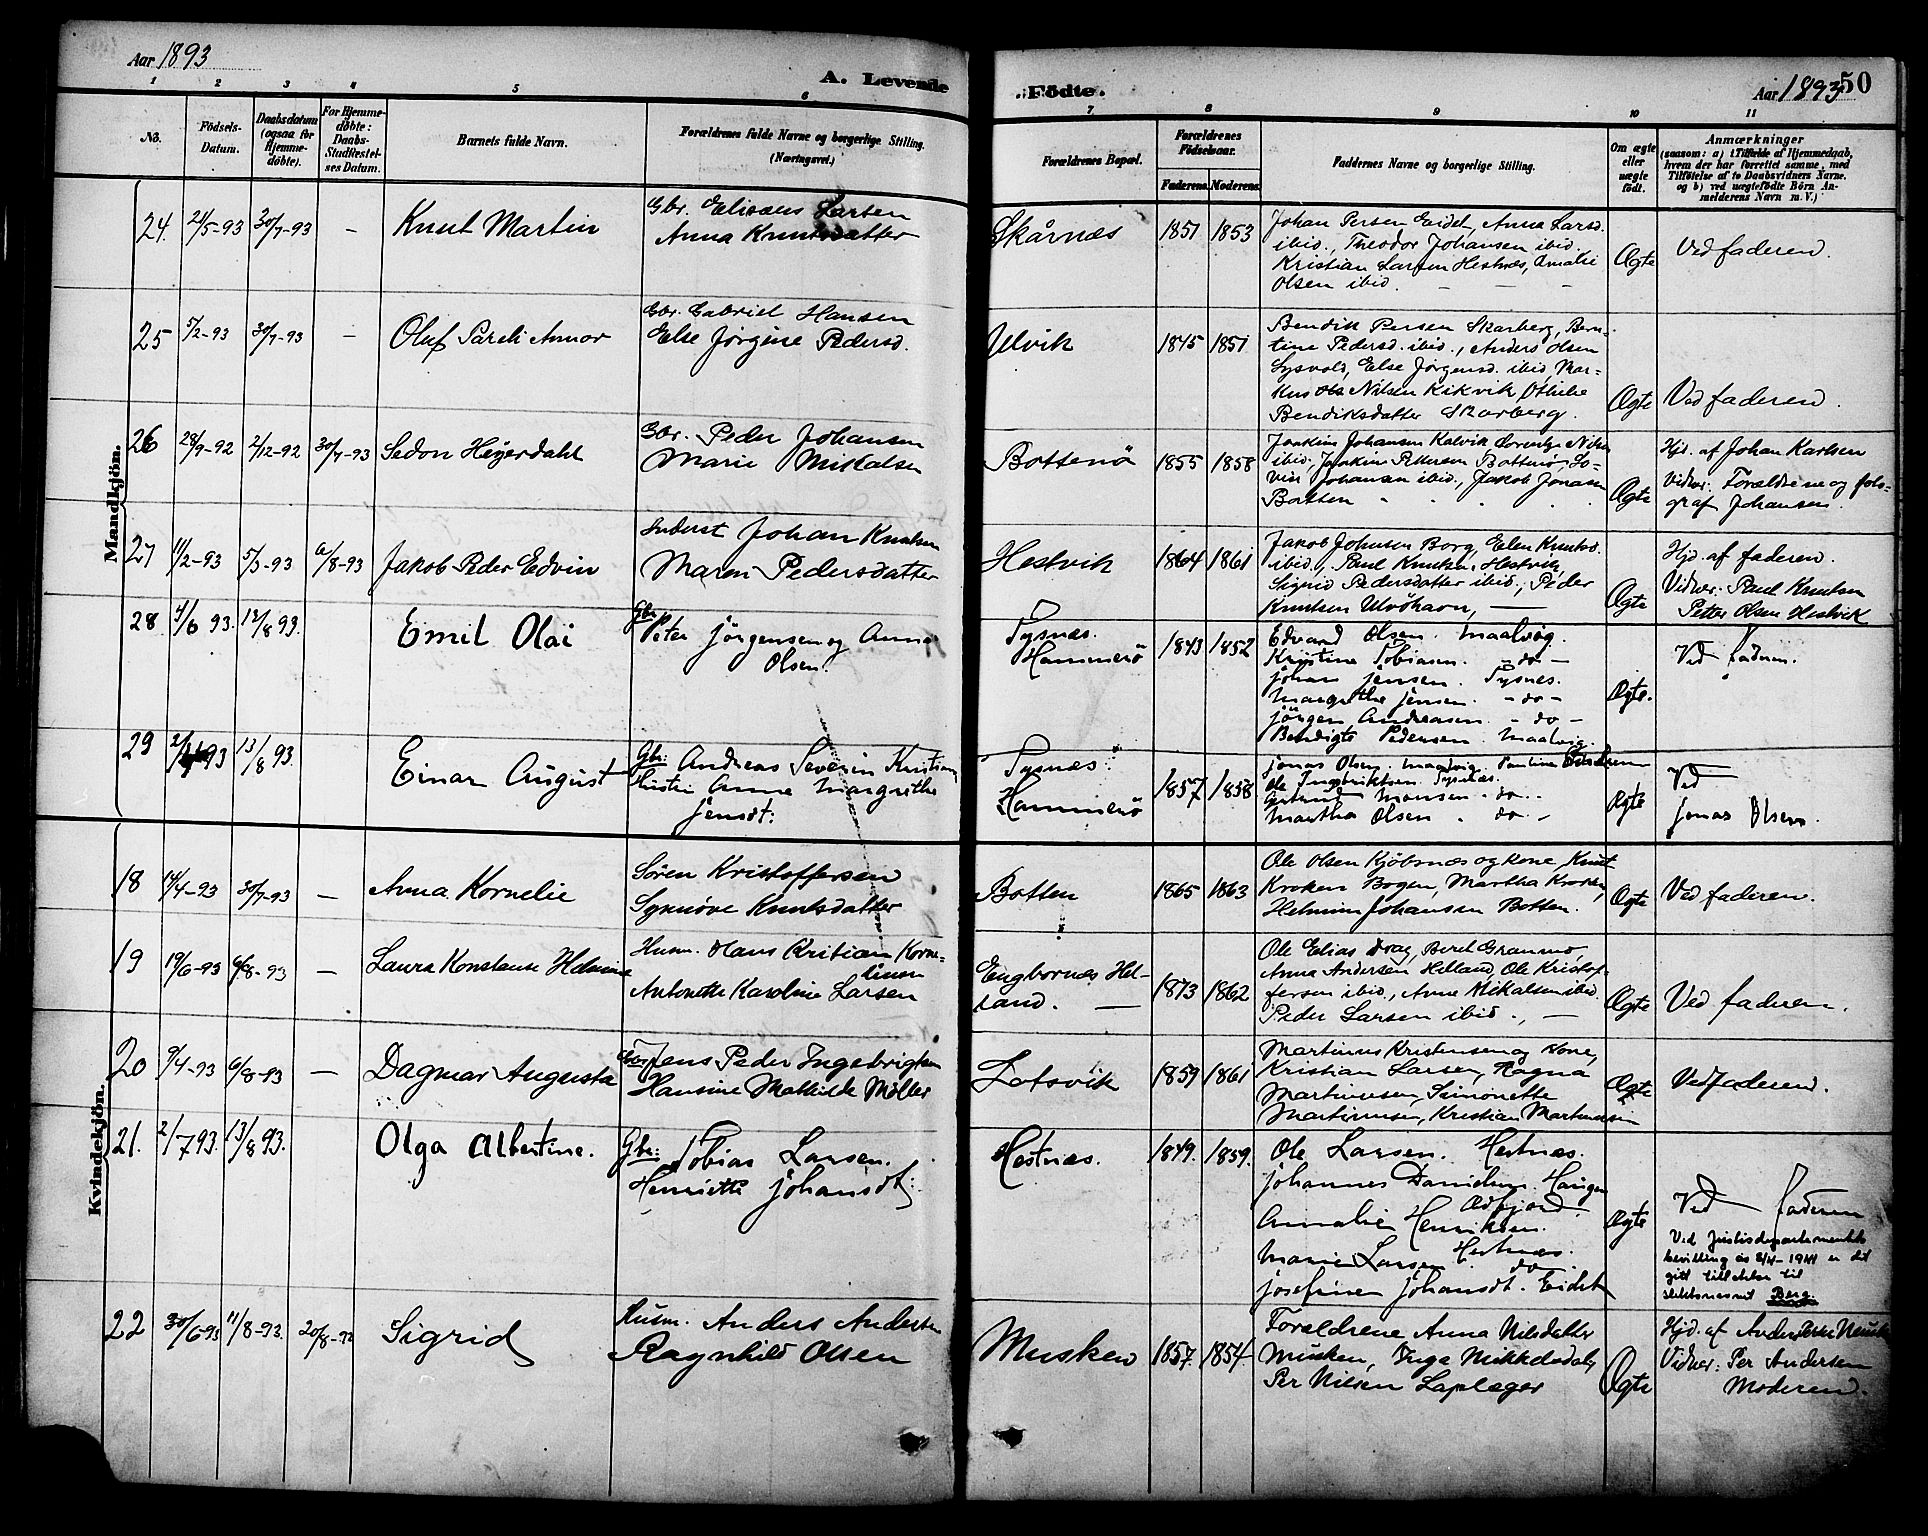 Aar 1893
A. Levende
Födte.
Aar 1893
50
1 2 3 4 5 6 7 8 9 10 11
No.
Födsels-
Datum.
Daabsdatum
(ogsaa for
Hjemme-
döbte).
For Hjemme-
döbte:
Daabs-
Stadfæstel-
ses Datum.
Barnets fulde Navn.
Forældrenes fulde Navne og borgerlige Stilling.
(Næringsvei.)
Forældrenes Bopæl.
Forældrenes
Födselsaar.
Faderens. Moderens.
Faddernes Navne og borgerlige Stilling.
Om ægte
eller
uægte
födt.
Anmærkninger
(saasom: a) i Tilfælde af Hjemmedaab,
hvem der har forrettet samme, med
Tilföielse af to Daabsvidners Navne.
og b) ved uægtefödte Börn An-
melderens Navn m. V.)
Mandkjön.
24. 21/5-93 30/7-93 – Knut Martin
Gbr. Elisæus Larsen
Anna Knutsdatter
Skårnæs 1851 1853
Johan Persen Eidet, Anna Larsd.
ibid., Theodor Johansen ibid.
Kristian Larsen Hestnæs, Amalie
Olsen ibid. – – –
Ægte
Ved faderen.
25 5/2-93 30/7-93 – Oluf Pareli Annor
Gbr. Gabriel Hansen
Else Jörgine Pedersd.
Ulvik 1845 1851
Bendik Persen Skarberg, Ben-
tine Pedersd. ibid., Anders Olsen
Sysvold, Else Jörgensd. ibid, Mar-
kus Nilsen Kikvik Othilie
Bendiksdatter Skarberg.
Ægte
Ved faderen.
26 28/9-92 2/12-92 30/7-93 Sedon Heyerdahl
Gbr. Peder Johansen
Marie Mikalsen
Bottenö 1855 1858
Joakim Johansen Kalvik
ibid, Joakim Pettersen Bottenö, Lo-
vise Johansen ibid., Jakob Jonasen
Botten
Ægte
Hjd. af Johan Karlsen
Vidner: Forældrene og
Johansen.
27 11/2-93 5/3-93 6/8-93 Jakob Peder Edvin
Inderst Johan Knutsen
Maren Pedersdatter
Hestvik 1864 1861
Jakob Johnsen Borg, Elen Knutsd.
ibid., Paul Knutsen Hestvik,
Sigrid Pedersdatter ibid., Peder
Knutsen Ulvöhavn, –
Ægte
Hjd. af faderen.
Vidner: Paul Knutsen
Petter Olsen Hestvik
28. 4/6 93. 13/8 93. Emil Olai
Gbr. Peter Jörgensen og Anna
Olsen.
Tysnæs.
Hammerö 1843 1852
Edvard Olsen. Maalvåg.
Kristine Tobiasen. – do –
Johan Jensen. Tysnes.
Margrethe Jensen. – do –
Jörgen Andreasen – do –
Bendigte Pedersen. Maalvig.
Ægte.
Ved faderen.
29 93 13/8 93. Einar August
Gbr: Andreas Severin Kristian
Anne Margrethe
Jensdt:
Tysnæs.
Hammerö 1857 1858
Jonas Olsen. Maalvig. Pauline
Ole Ingebriktsen Tysnæs.
Monsen – do –
Martha Olsen – do –
Ægte
Ved
Jonas Olsen.
Kvindekjön.
18 14/4-93 30/7-93 – Anna Kornelie
Sören Kristoffersen
Synnöve Knutsdatter
Botten 1865 1863
Ole Olsen Kjöbsnæs og kone, Knut
Kroken Bogen, Martha Kroken,
Helmine Johansen Botten.
Ægte
Ved faderen.
19 19/6-93 6/8-93 – Laura Konstanse Helmine
Husm. Hans Kristian Korne-
liusen
Antonette Karoline Larsen
Engbornæs Hel-
land. – 1873 1862
Ole Elias Drag, Beret Grannæs,
Anna Andersen Helland, Ole Kristof-
fersen ibid., Anne Mikalsen ibid.
Peder Larsen ibid., –
Ægte
Ved faderen.
20 9/4-93 6/8-93 – Dagmar Augusta
Gbr. Jens Peder Ingebrigtsen
Hansine Mathilde Möller
Lotsvik 1859 1861
Martinus Kristensen og kone,
Kristian Larsen, Ragna
Martinusen, Simonette
Martinusen, Kristian Martinusen
Ægte
Ved faderen.
21. 2/7 93. 13/8 93. Olga Albertine.
Gbr: Tobias Larsen.
Henriette Johansdt:
Hestnæs. 1849. 1859.
Ole Larsen. Hestnæs.
Johannes Danielsen.
Annalie Henriksen.
Marie Larsen Hestnæs.
do
Josefine Johansdt. Eidet
Ægte
Ved faderen
Ved Justisdepartementets
bevilling av 2/4-1941 er det
gitt tillatelse til
slektsnavnet Berg.
22 30/6-93 11/8-93. 20/8-93 Sigrid
Husm. Anders Andersen
Ragnhild Olsen
Musken 1857. 1854
Forældrene Anna Nilsdatter
Musken, Inga Mikkelsdatr
Per Nilsen Laplæger
Ægte
Hjd. af Anders Musken
Vidner: Per Andersen
Moderen.